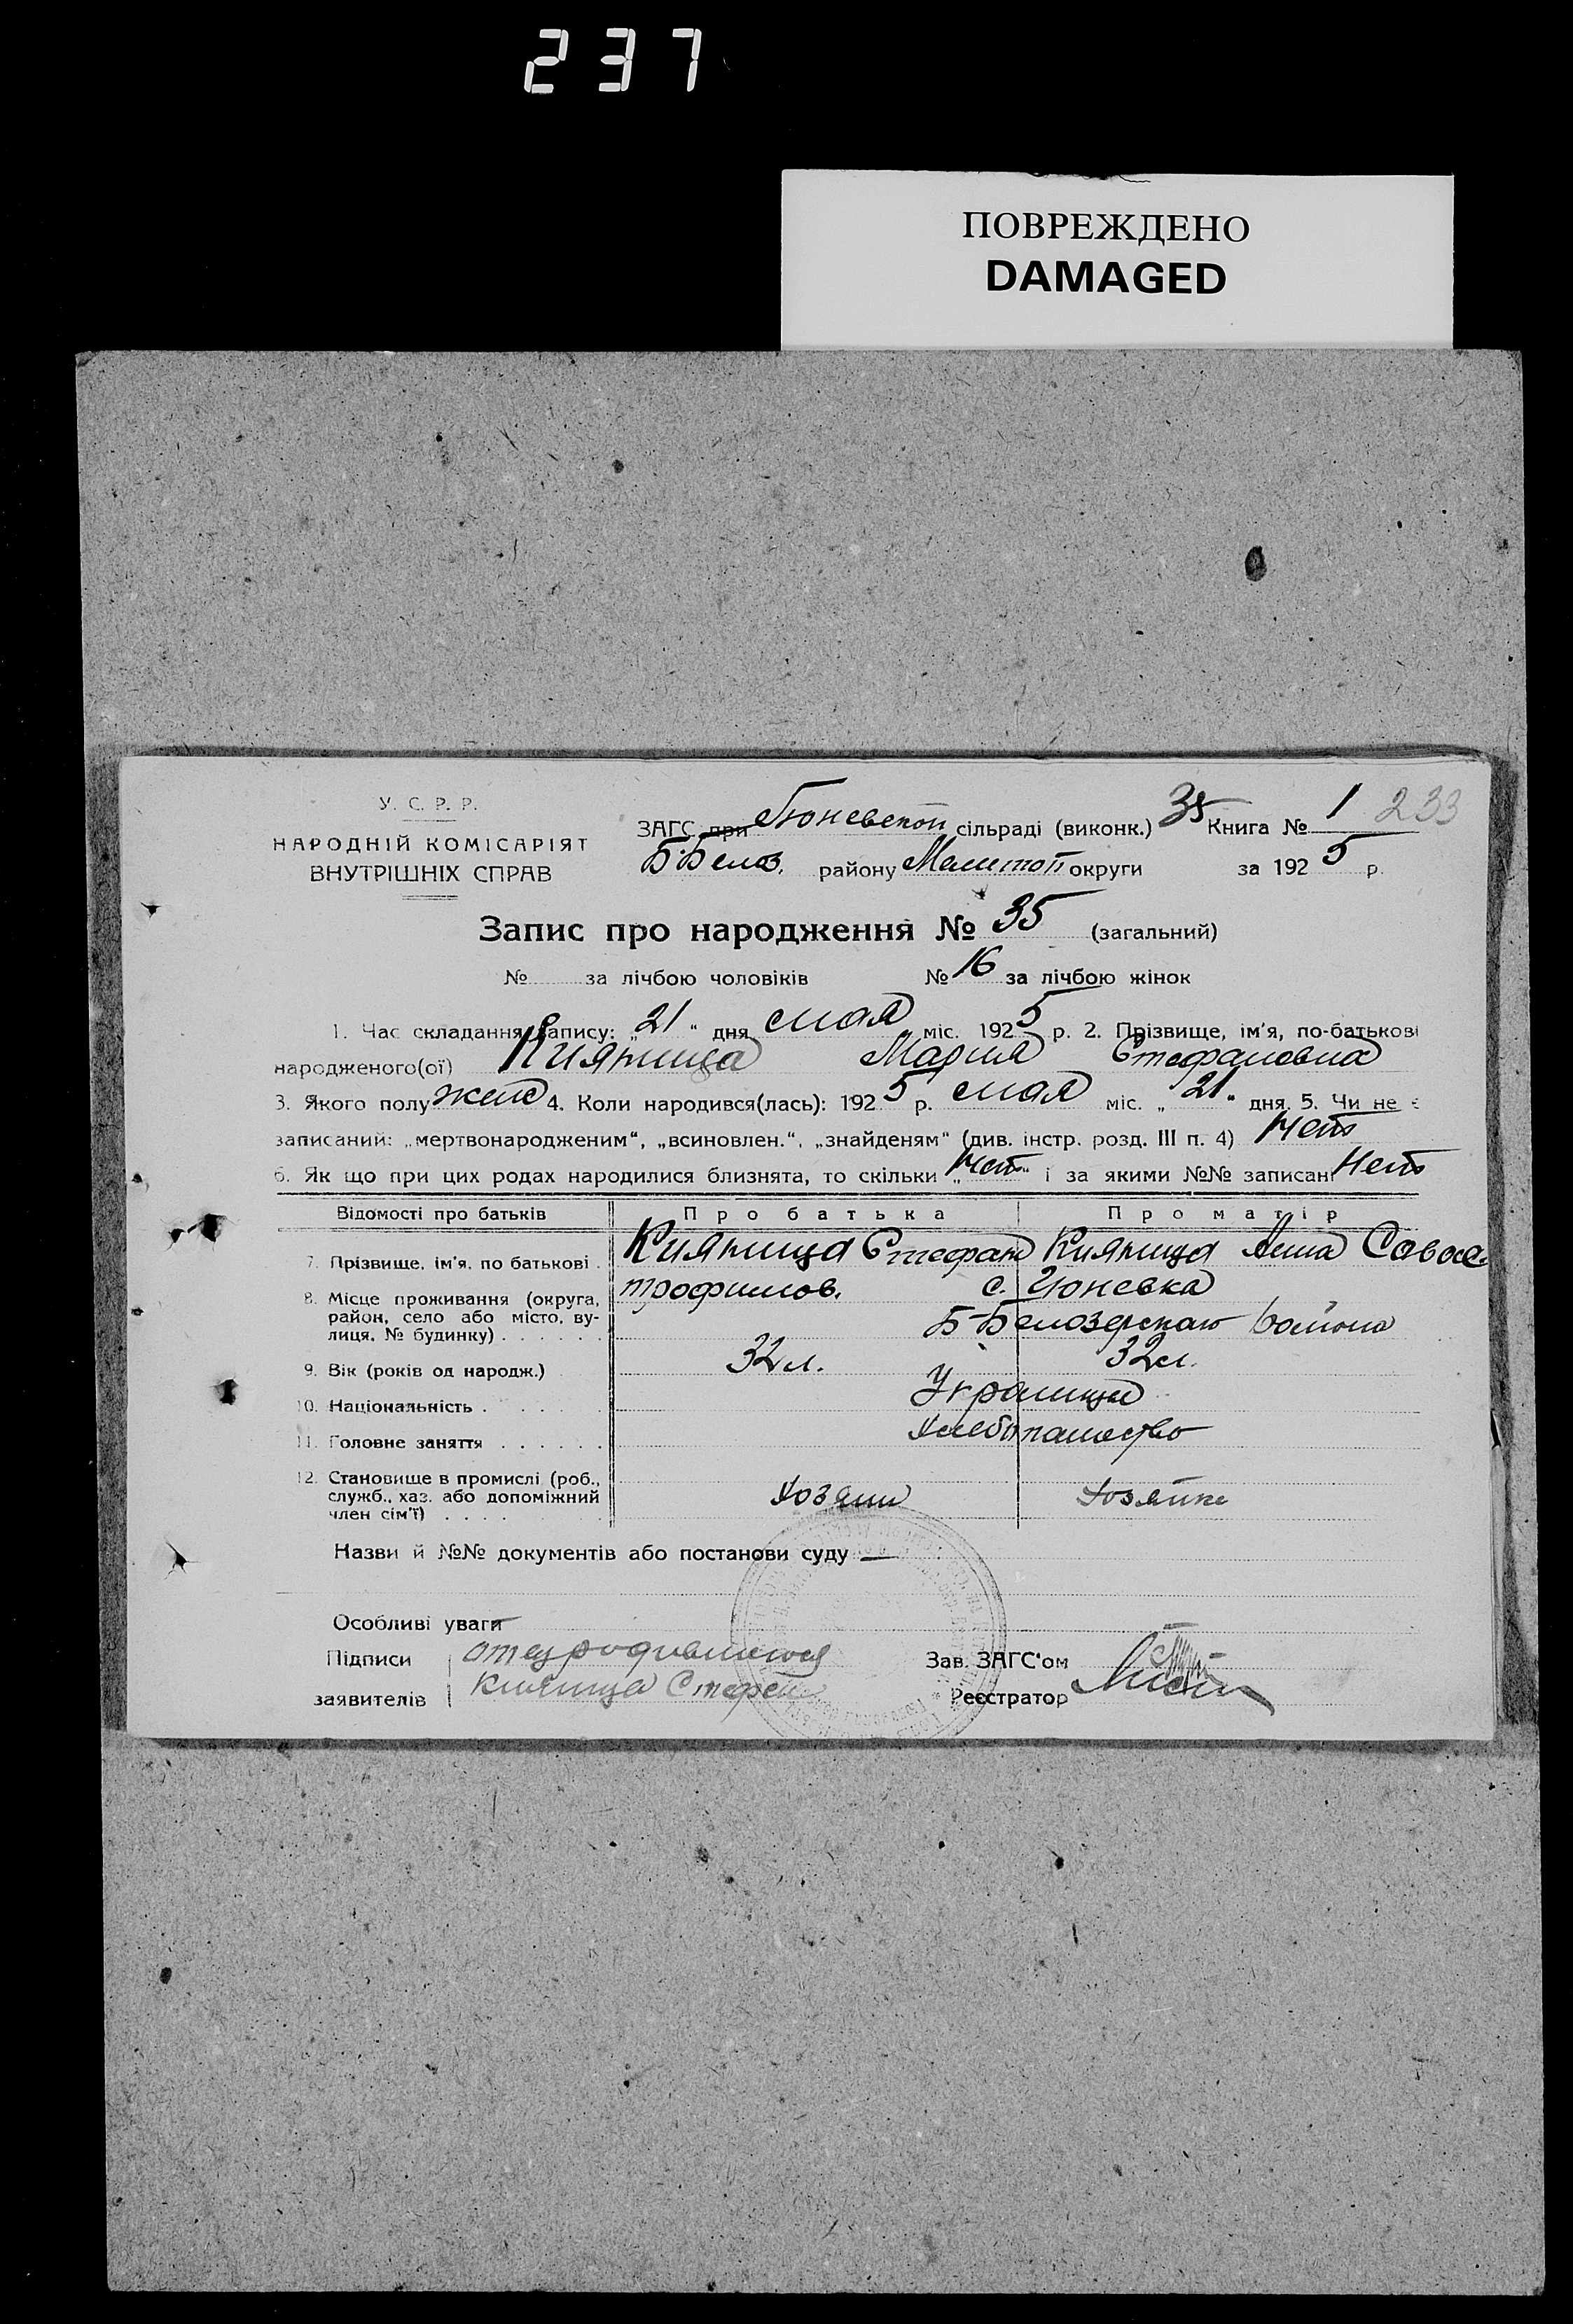 237
ПОВРЕЖДЕНО
DAMAGED
У. С. Р. Р.
НАРОДНІЙ КОМІСАРІЯТ
ВНУТРІШНІХ СПРАВ
ЗАГС при Гюневской сільраді (виконк.) 35 Книга № 1 233
Б-Белоз. району Мелитоп округи за 1925 р.
Запис про народження № 35 (загальний)
№ за лічбою чоловіків № 16 за лічбою жінок
1. Час складання запису: „21“ дня мая міс. 1925 р. 2. Прізвище, ім'я, по-батькові
народженого(ої) Кияница Мария Стефановна
3. Якого полу жен 4. Коли народився(лась): 1925 р. мая міс. „21“ дня. 5. Чи не є
записаний: „мертвонародженим“, „всиновлен.“, „знайденям“ (див. інстр. розд. III п. 4) Нет
6. Як що при цих родах народилися близнята, то скільки „Нет“ і за якими №№ записані Нет
Відомості про батьків Про батька Про матір
7. Прізвище, ім'я, по батькові . Кияница Стефан Трофимов. Кияница Анна Савва
8. Місце проживання (округа, район, село або місто, вулиця, № будинку) . . . . . . с. Гюневка
Б-Белозерского района
9. Вік (років од народж.) 32 л. 32 л.
10. Національність . . . . . . Украинцы
11. Головне заняття . . . . . . Хлебопашество
12. Становище в промислі (роб., служб., хаз. або допоміжний член сім'ї) . . . . Хозяин Хозяйка
Назви й №№ документів або постанови суду —
Особливі уваги
Підписи отец родившегося
заявителів Кияница Стефан
Зав. ЗАГС'ом
Реєстратор